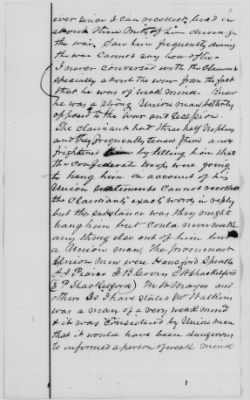 ever since I can recollect, lived in
about three miles of him during
the war. Saw him frequently during
the war Cannot say how often
I never conversed with the Claimant
specially about the war from the fact
that he was of weak mind. Know
he was a strong Union man bitterly
opposed to the war and secession.
The claimant had three half Nephews
and they frequently teased him and
frightened him by telling him that
the confederate troops were going
to hang him on account of his
Union sentiments Cannot recollect
the Claimants exact words in reply
but the substance was they might
hang him but could never make
any thing else out of him but
a Union man. The prominent
Union men were Hansford
A. J. F. B. W Shackelford
E P Shackelford M. W. Mayes and
others As I have stated Mr Watkins
was a man of a very weak mind
& it was considered by Union men
that it would have been dangerous
to informed a person of weak mind